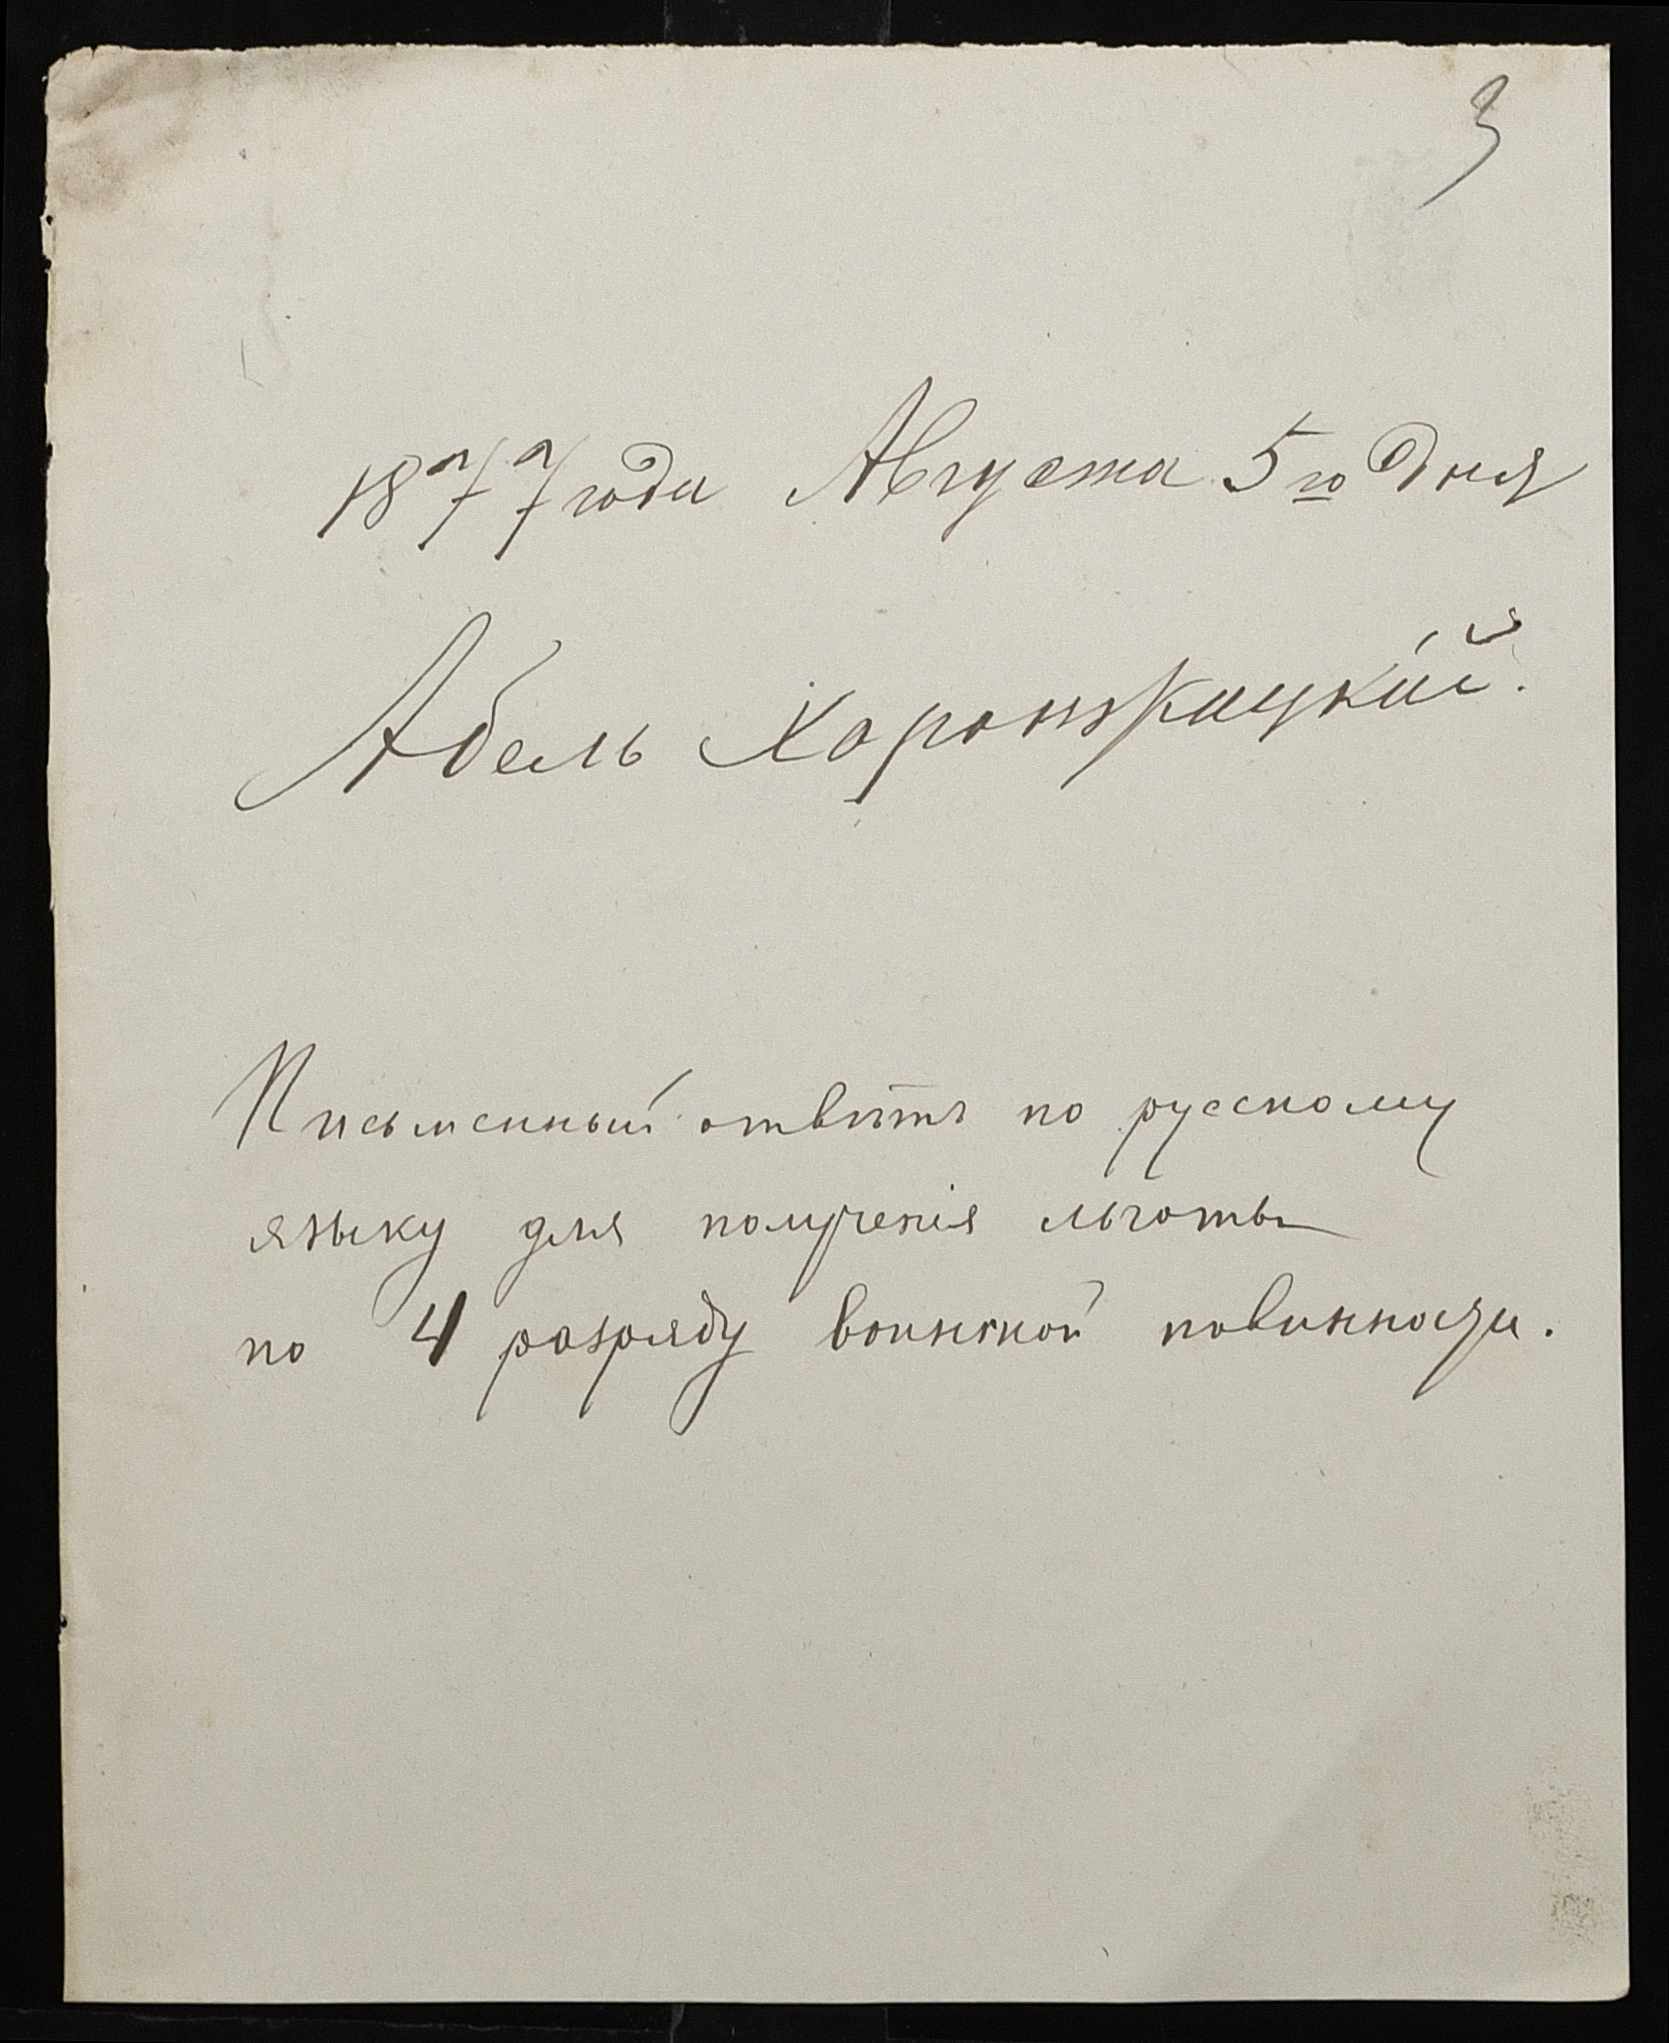 3
1877 года Августа 5го Дня
Абель Хоронжицкій.
Письменный отвѣтъ по русскому
языку для полученія льготы
по 4 разряду воинской повинности.